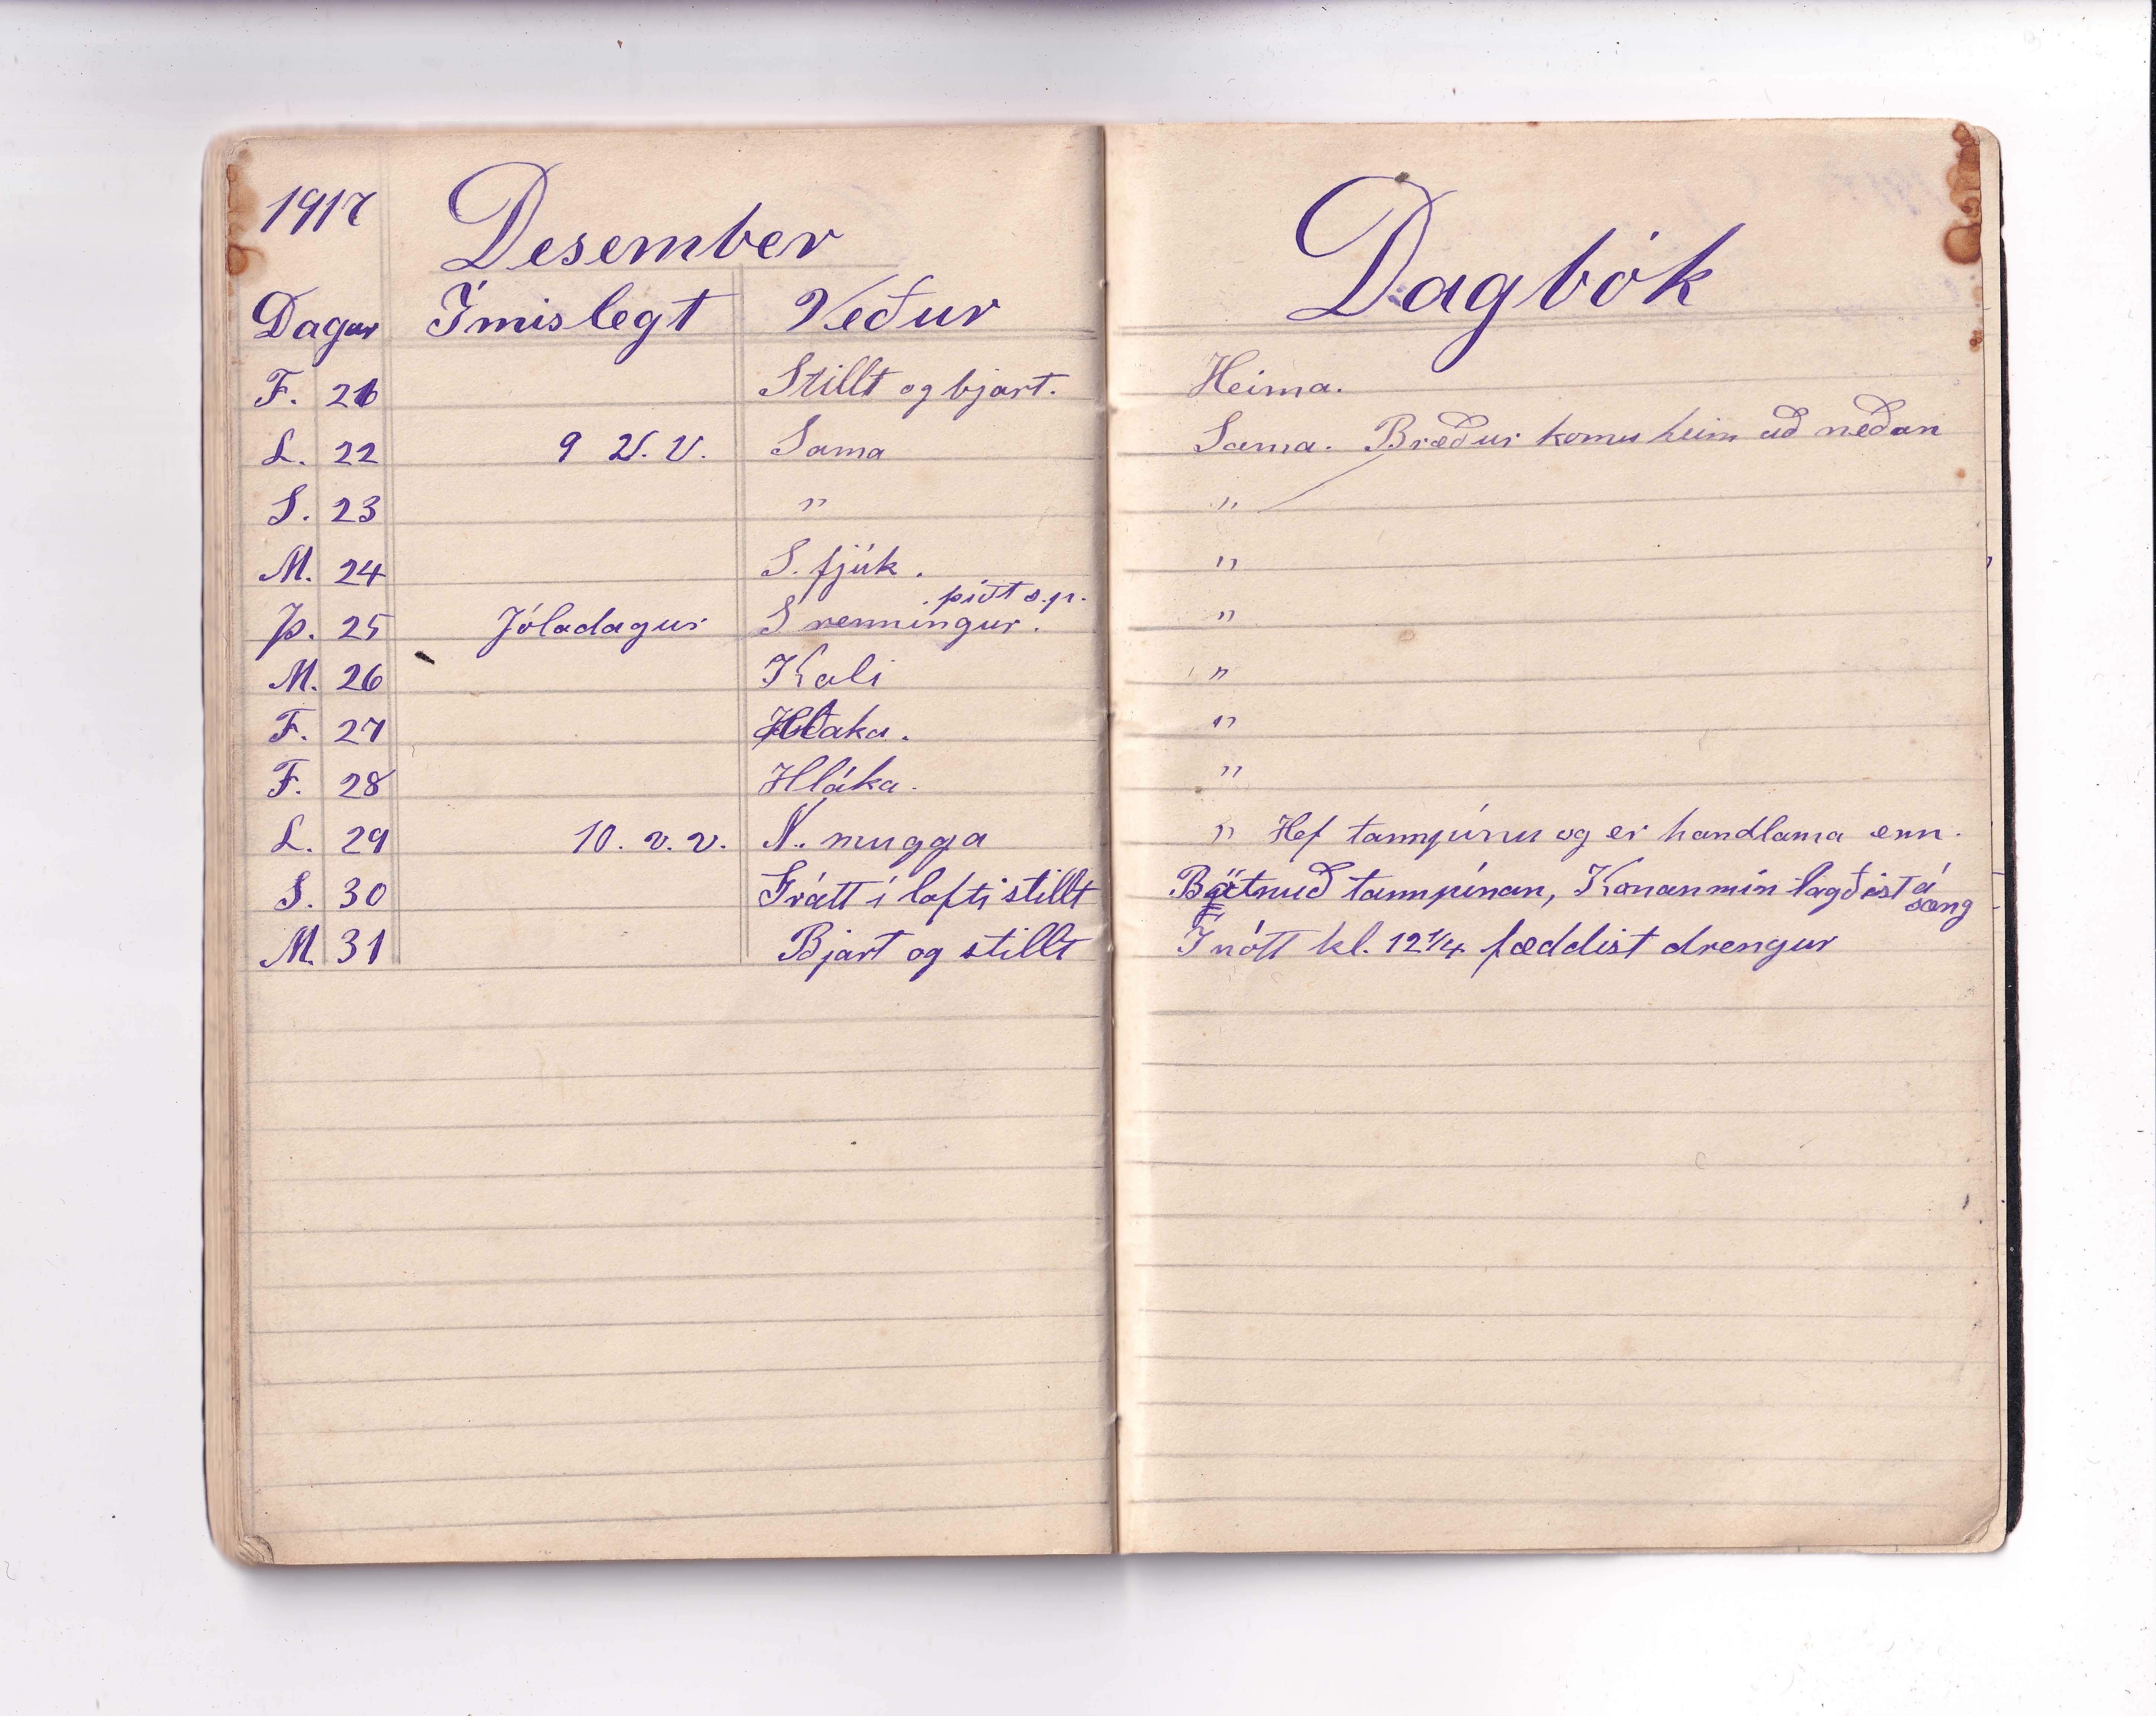 1917 Desember
Dagur Ímislegt Veður
F. 21 Stillt og bjart.
L. 22 9 V. V. Sama
S. 23 "
M. 24 S. fjúk.
þítt s.p.
Þ. 25 Jóladagur S renningur.
M. 26 Kali
F. 27 Hláka.
F. 28 Hláka.
L. 29 10. v. v. N. mugga
S. 30 Grátt í lofti stillt
M. 31 Bjart og stillt
Dagbók
Heima.
Sama. Bræður komu heim að neðan
"
"
"
"
"
"
" Hef tannpínu og er handlama enn.
Bötnuð tannpínan, Konan mín lagðist á
sæng
Í nótt kl. 12 1/4 fæddist drengur